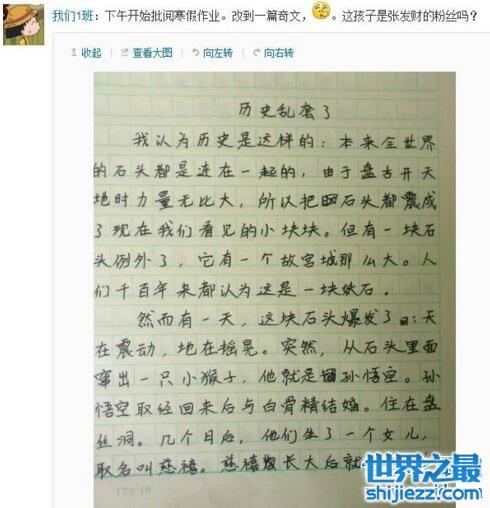 我们1班：下午开始批阅寒假作业。改到一篇奇文，。这孩子是张发财的粉丝吗？
收起 查看大图 向左转 向右转
历史乱套了
我认为历史是这样的：本来全世界
的石头都是连在一起的，由于盘古开天
地时力量无比大，所以把石头都震成
了现在我们看见的小块块。但有一块石
头例外了，它有一个故宫城那么大。人
们千百年来都认为这是一块妖石。
然而有一天，这块石头爆发了：天
在震动，地在摇晃。突然，从石头里面
窜出一只小猴子，他就是孙悟空。孙
悟空取经回来后与白骨精结婚。住在盘
丝洞。几个月后，他们生了一个女儿，
取名叫慈禧。慈禧长大后就
17×18
世界之最
shijiezz.com